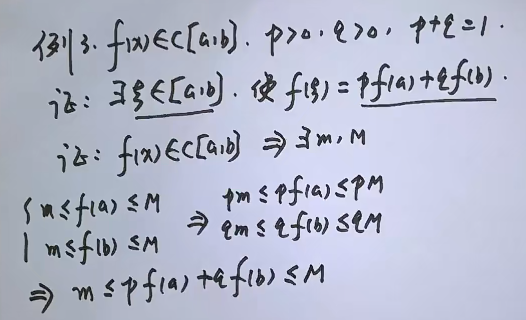 例3. f(x)∈C[a,b]. p>0, q>0, p+q=1.
证: ∃ξ∈[a,b]. 使 f(ξ)=pf(a)+qf(b).
证: f(x)∈C[a,b] ⇒ ∃m,M
{ m≤f(a)≤M ⇒ pm≤pf(a)≤pM
m≤f(b)≤M qm≤qf(b)≤qM
⇒ m≤pf(a)+qf(b)≤M